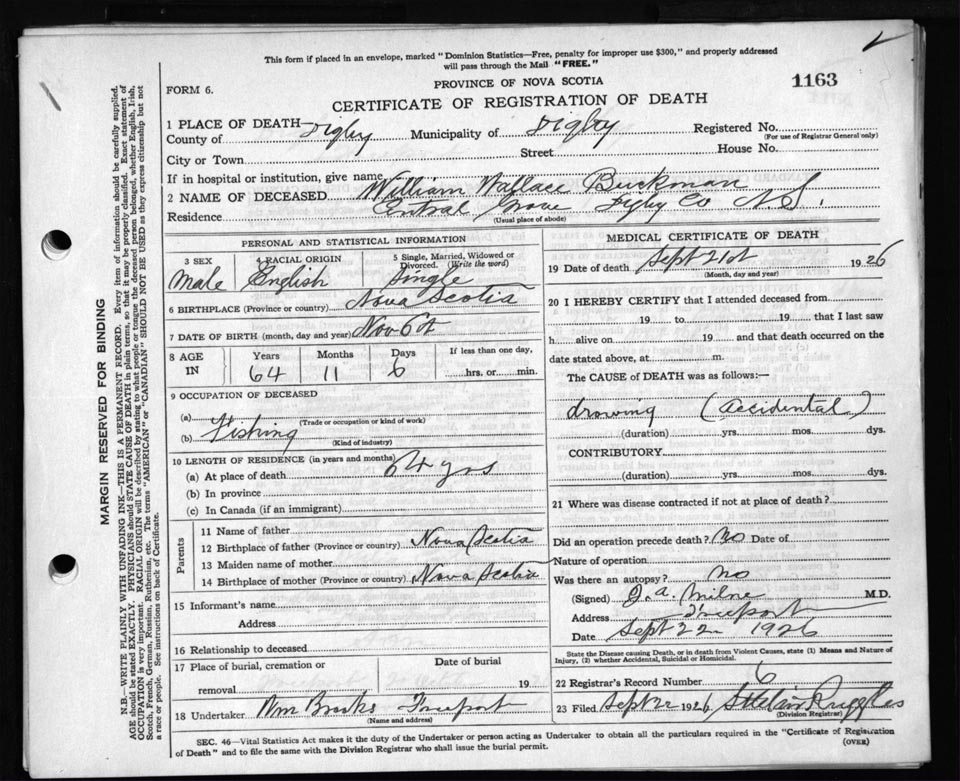 This form if placed in an envelope, marked "Dominion Statistics—Free, penalty for improper use $300," and properly addressed
will pass through the Mail "FREE."
PROVINCE OF NOVA SCOTIA
FORM 6.
1163
CERTIFICATE OF REGISTRATION OF DEATH
1 PLACE OF DEATH—
County of Digby Municipality of Digby Registered No.
(For use of Registrar General only)
City or Town Street House No.
If in hospital or institution, give name
2 NAME OF DECEASED William Wallace Buckman
Residence Central Grove Digby Co N.S.
(Usual place of abode)
PERSONAL AND STATISTICAL INFORMATION
3 SEX 4 RACIAL ORIGIN 5 Single, Married, Widowed or Divorced. (Write the word)
Male English Single
6 BIRTHPLACE (Province or country) Nova Scotia
7 DATE OF BIRTH (month, day and year) Nov 6th
8 AGE IN Years Months Days If less than one day,
64 11 6 hrs. or min.
9 OCCUPATION OF DECEASED
(a)
(Trade or occupation or kind of work)
(b) Fishing
(Kind of industry)
10 LENGTH OF RESIDENCE (in years and months)
(a) At place of death 64 yrs
(b) In province
(c) In Canada (if an immigrant)
Parents
11 Name of father
12 Birthplace of father (Province or country) Nova Scotia
13 Maiden name of mother
14 Birthplace of mother (Province or country) Nova Scotia
15 Informant's name
Address
16 Relationship to deceased
17 Place of burial, cremation or removal Date of burial
19
18 Undertaker Wm Brooks Freeport
(Name and address)
MEDICAL CERTIFICATE OF DEATH
19 Date of death Sept 21st 1926
(Month, day and year)
20 I HEREBY CERTIFY that I attended deceased from
19 to 19 that I last saw
h alive on 19 and that death occurred on the
date stated above, at m.
The CAUSE of DEATH was as follows:—
drowing (accidental)
(duration) yrs. mos. dys.
CONTRIBUTORY
(duration) yrs. mos. dys.
21 Where was disease contracted if not at place of death?
Did an operation precede death? No Date of
Nature of operation
Was there an autopsy? no
(Signed) J. A. Milne M.D.
Address Freeport
Date Sept 22 1926
State the Disease causing Death, or in death from Violent Causes, state (1) Means and Nature of
Injury, (2) whether Accidental, Suicidal or Homicidal.
22 Registrar's Record Number 6
23 Filed Sept 22 1926 Ruggles
(Division Registrar)
SEC. 46—Vital Statistics Act makes it the duty of the Undertaker or person acting as Undertaker to obtain all the particulars required in the "Certificate of Registration
of Death" and to file the same with the Division Registrar who shall issue the burial permit.
(OVER)
MARGIN RESERVED FOR BINDING
N.B.—WRITE PLAINLY WITH UNFADING INK—THIS IS A PERMANENT RECORD. Every item of information should be carefully supplied.
AGE should be stated EXACTLY. PHYSICIANS should STATE CAUSE OF DEATH in plain terms, so that it may be properly classified. Exact statement of
OCCUPATION is very important. RACIAL ORIGIN will be described by stating to what people or tongue the deceased person belonged, whether English, Irish,
Scotch, French, German, Russian, Ruthenian, etc. The terms "AMERICAN" or "CANADIAN" SHOULD NOT BE USED as they express citizenship but not
a race or people. See instructions on back of Certificate.